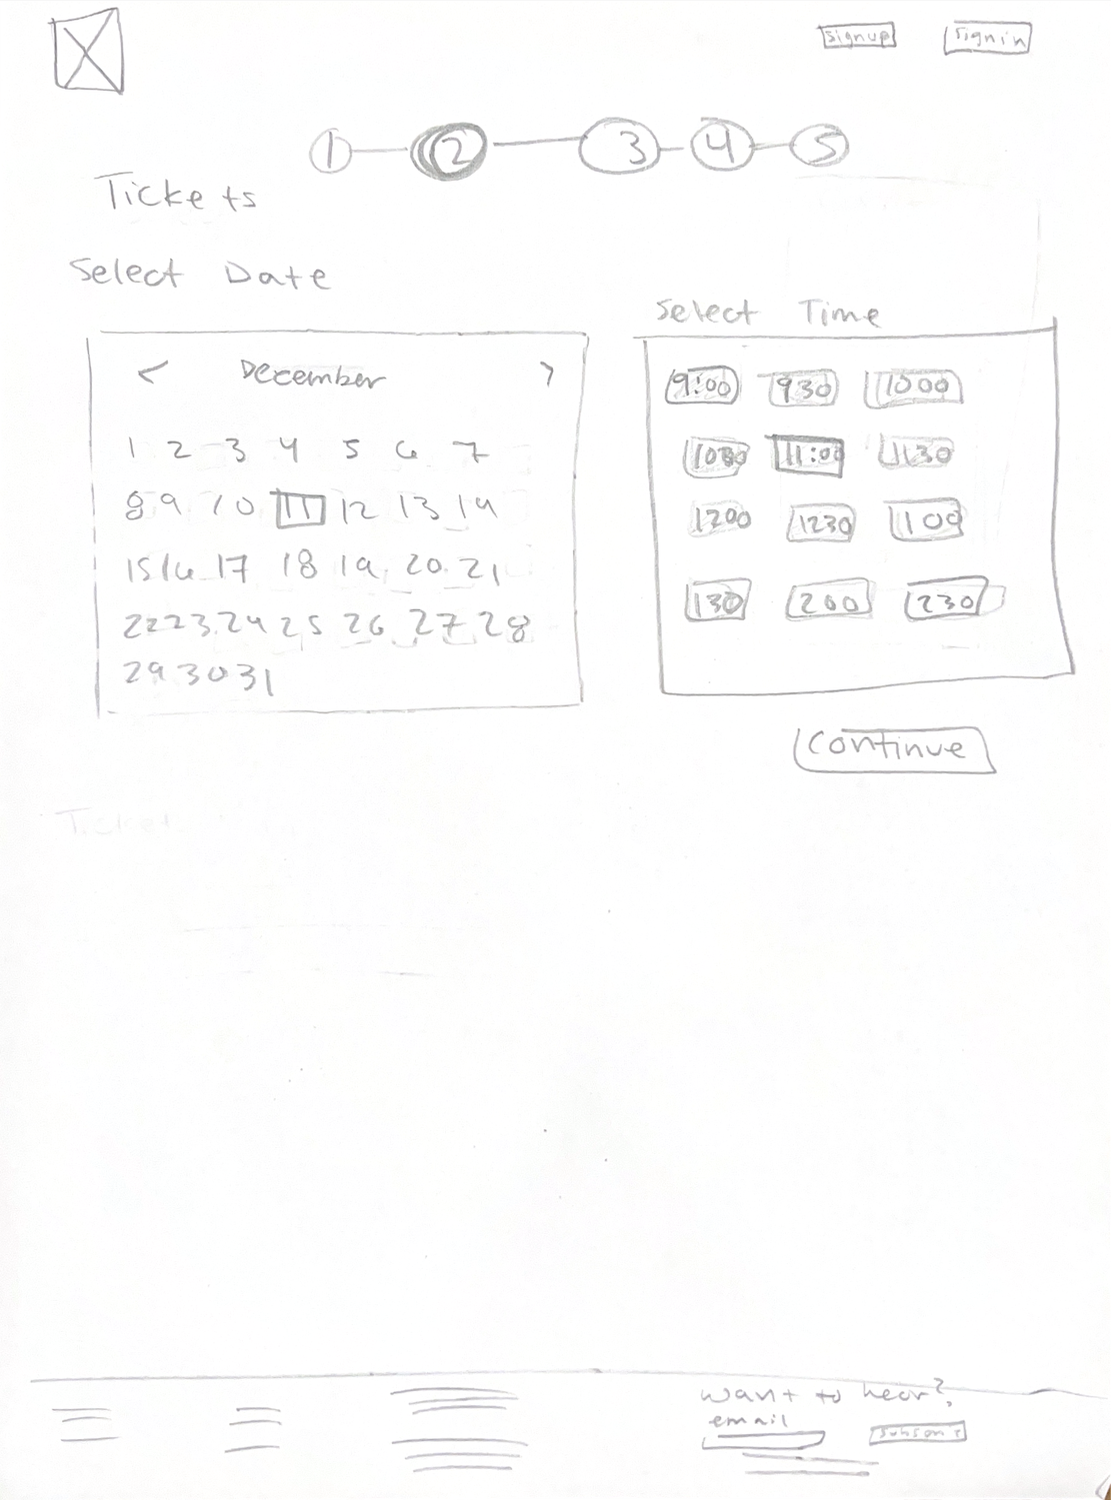 signup signin
1 2 3 4 5
Tickets
Select Date
Select Time
< December >
1 2 3 4 5 6 7
8 9 10 11 12 13 14
15 16 17 18 19 20 21
22 23 24 25 26 27 28
29 30 31
9:00 930 1000
1030 11:00 1130
1200 1230 100
130 200 230
Continue
Ticket
want to hear?
email